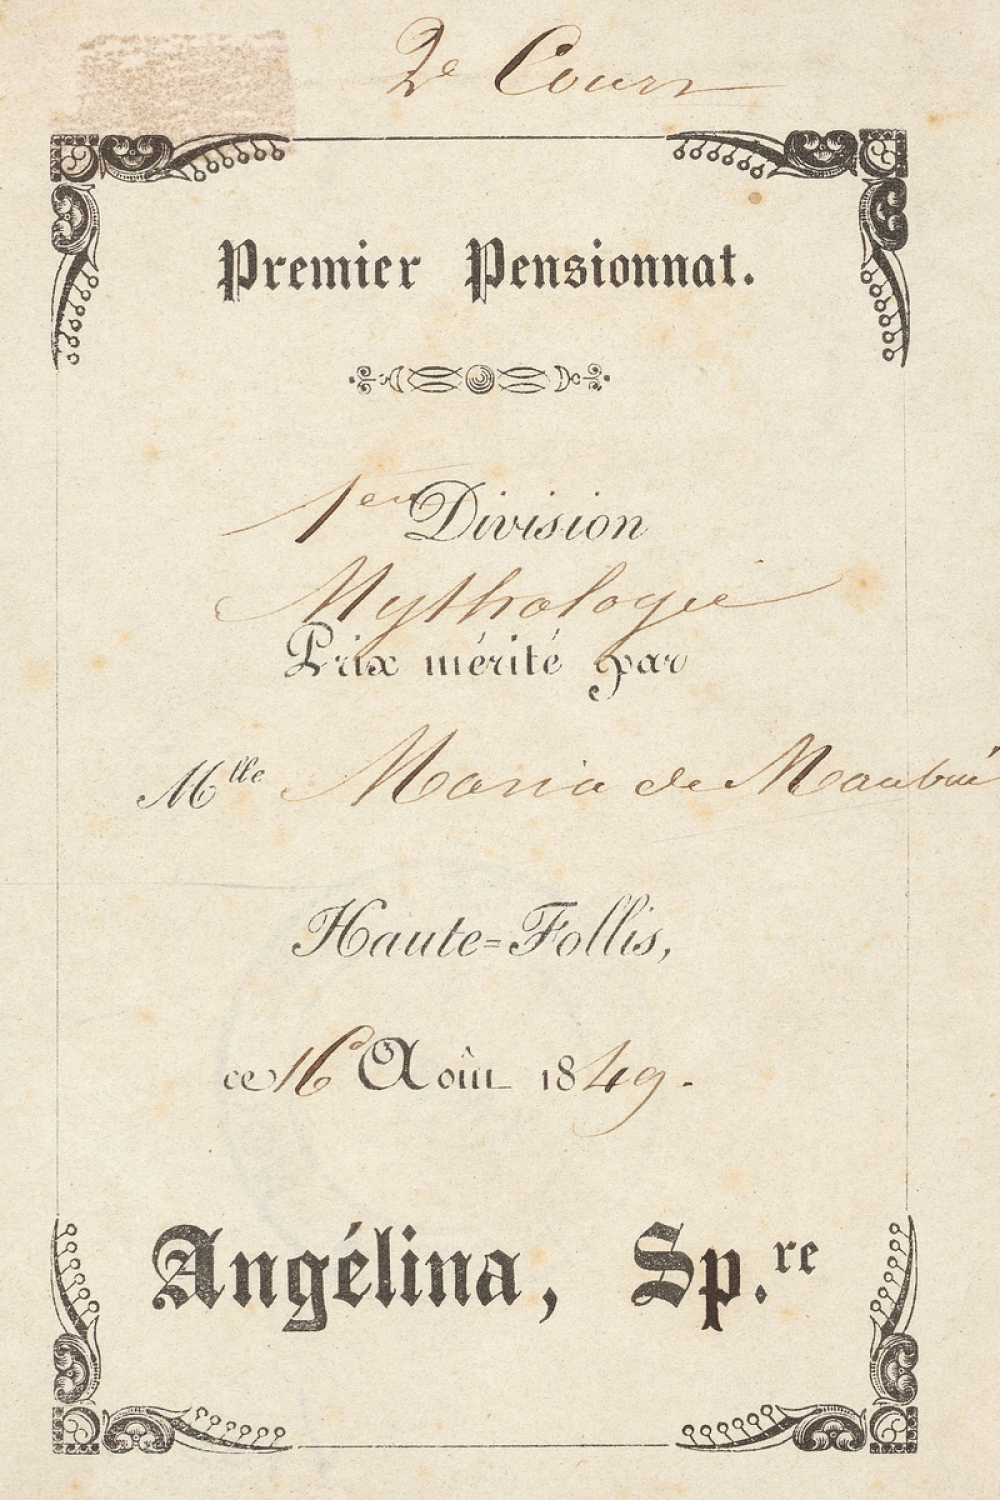 2e Cours
Premier Pensionnat.
1ere Division
Mythologie
Prix mérité par
Mlle Maria de Maubué
Haute=Follis,
ce 16 Août 1849.
Angélina, Sp.re